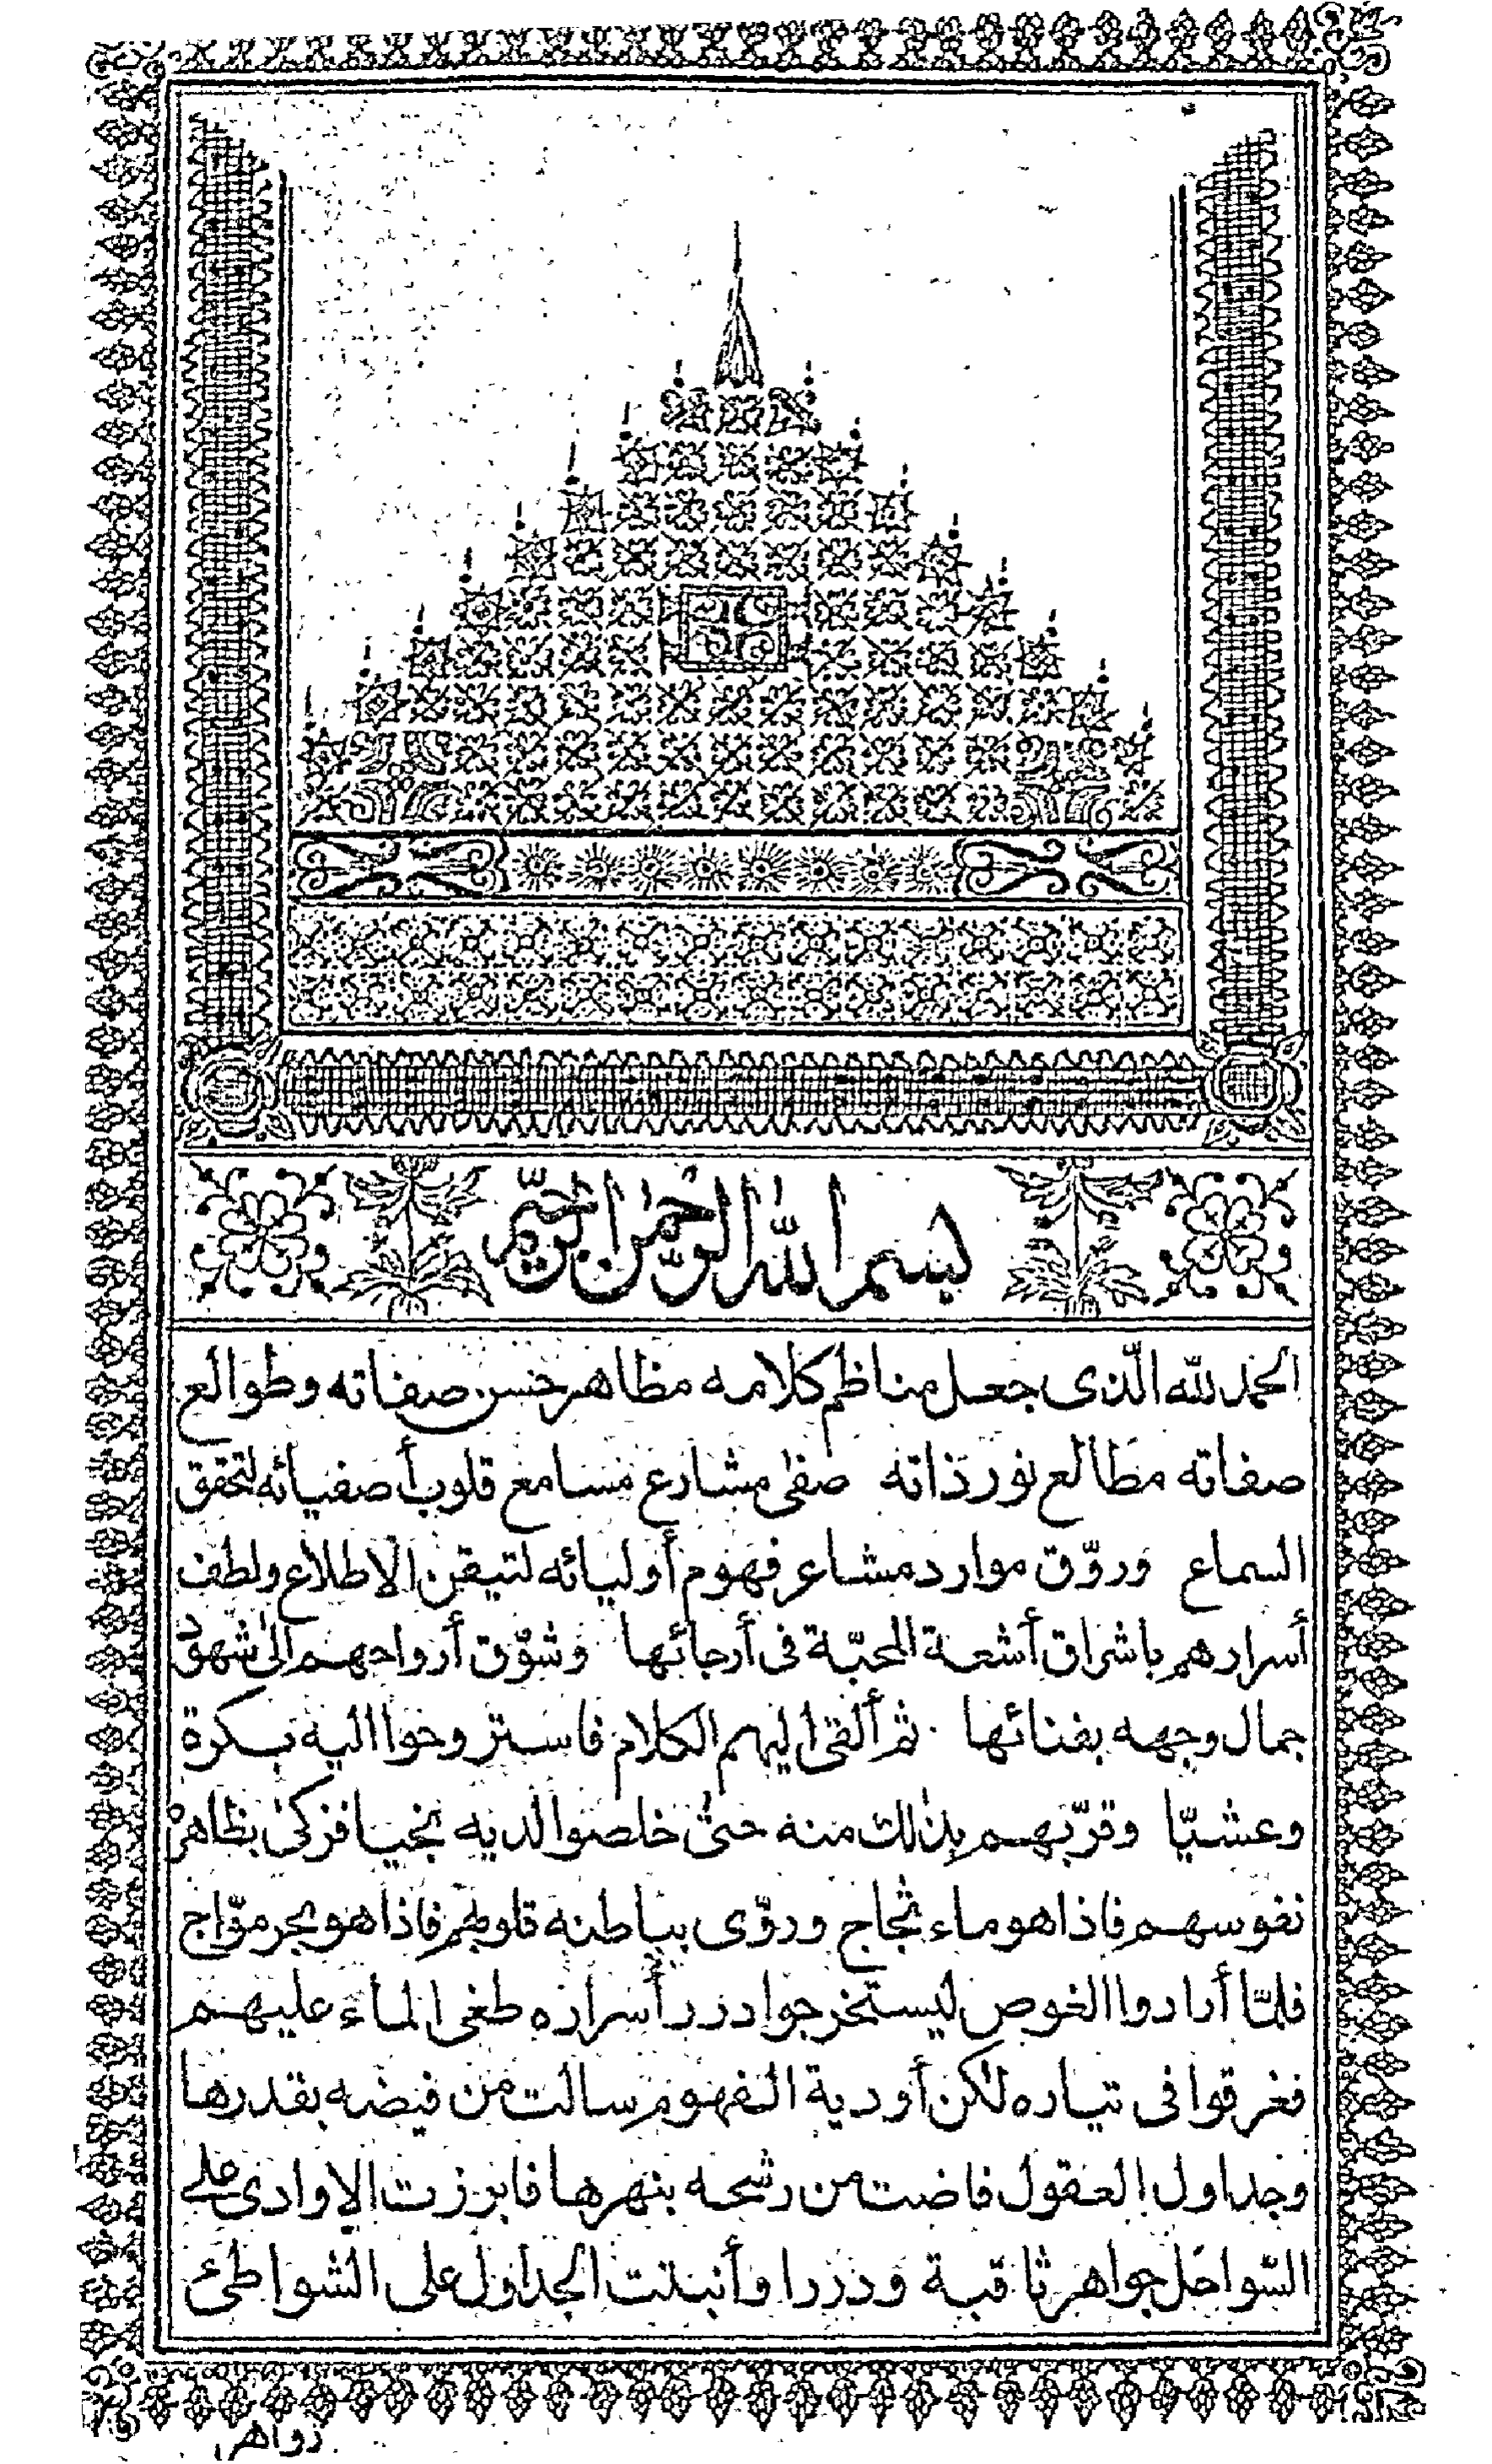 بسم الله الرّحمٰن الرّحيم
الحمد لله الّذى جعل مناظم كلامه مظاهر حسن صفاته وطوالع
صفاته مطالع نور ذاته صفى مشارع مسامع قلوب أصفيائه لتحقق
السماع وروّق موارد مشاعر فهوم أوليائه لتيقن الاطلاع ولطف
أسرارهم باشراق أشعة المحبّة فى أرجائها وشوّق أرواحهم الى شهود
جمال وجهه بفنائها ثم ألقى اليهم الكلام فاستروحوا اليه بكرة
وعشيّا وقرّبهم بذلك منه حتى خلصوا لديه نجيا فزكى بظاهره
نفوسهم فاذا هو ماء ثجاج وروّى بباطنه قلوبهم فاذا هو بحر موّاج
فلمّا أرادوا الغوص ليستخرجوا درر أسراره طغى الماء عليهم
فغرقوا فى تياره لكن أودية الفهوم سالت من فيضه بقدرها
وجداول العقول فاضت من رشحه بنهرها فابرزت الاوادى على
السّواحل جواهر ثاقبة ودررا وأنبتت الجداول على الشواطئ
زواهر